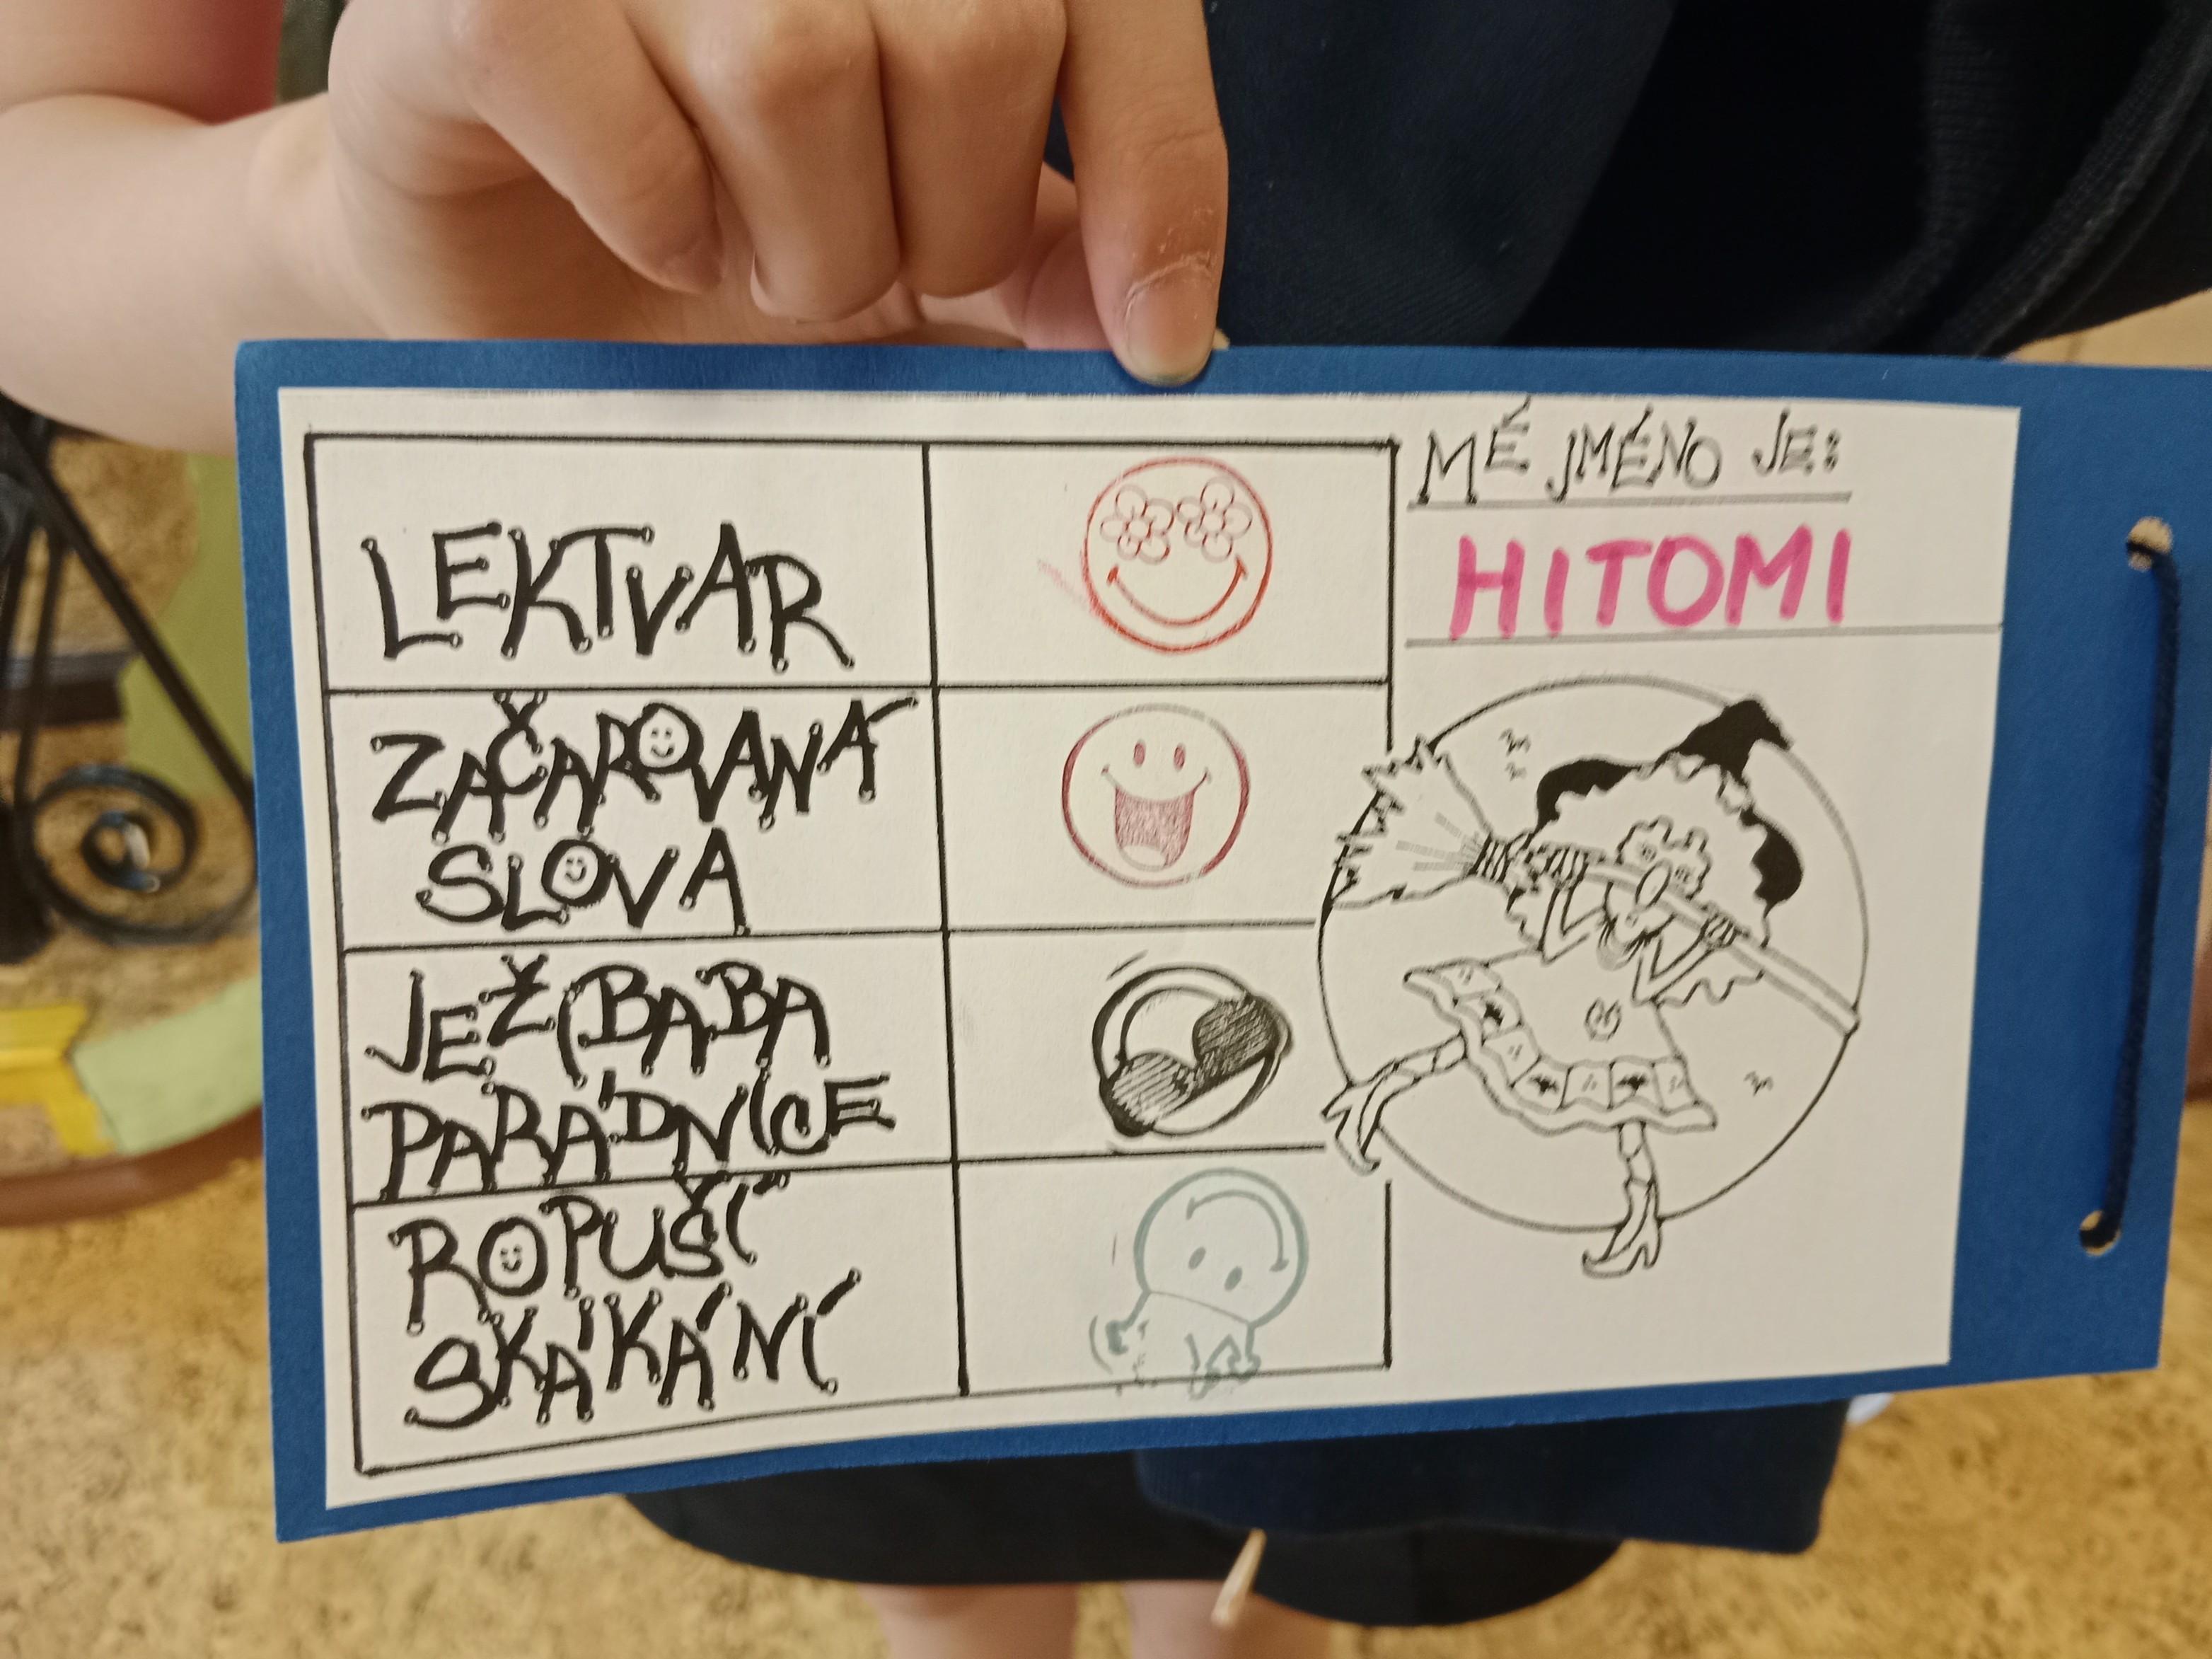 MÉ JMÉNO JE:
HITOMI
LEKTVAR
ZAČAROVANÁ
SLOVA
JEŽIBABA
PARÁDNICE
ROPUŠÍ
SKÁKÁNÍ